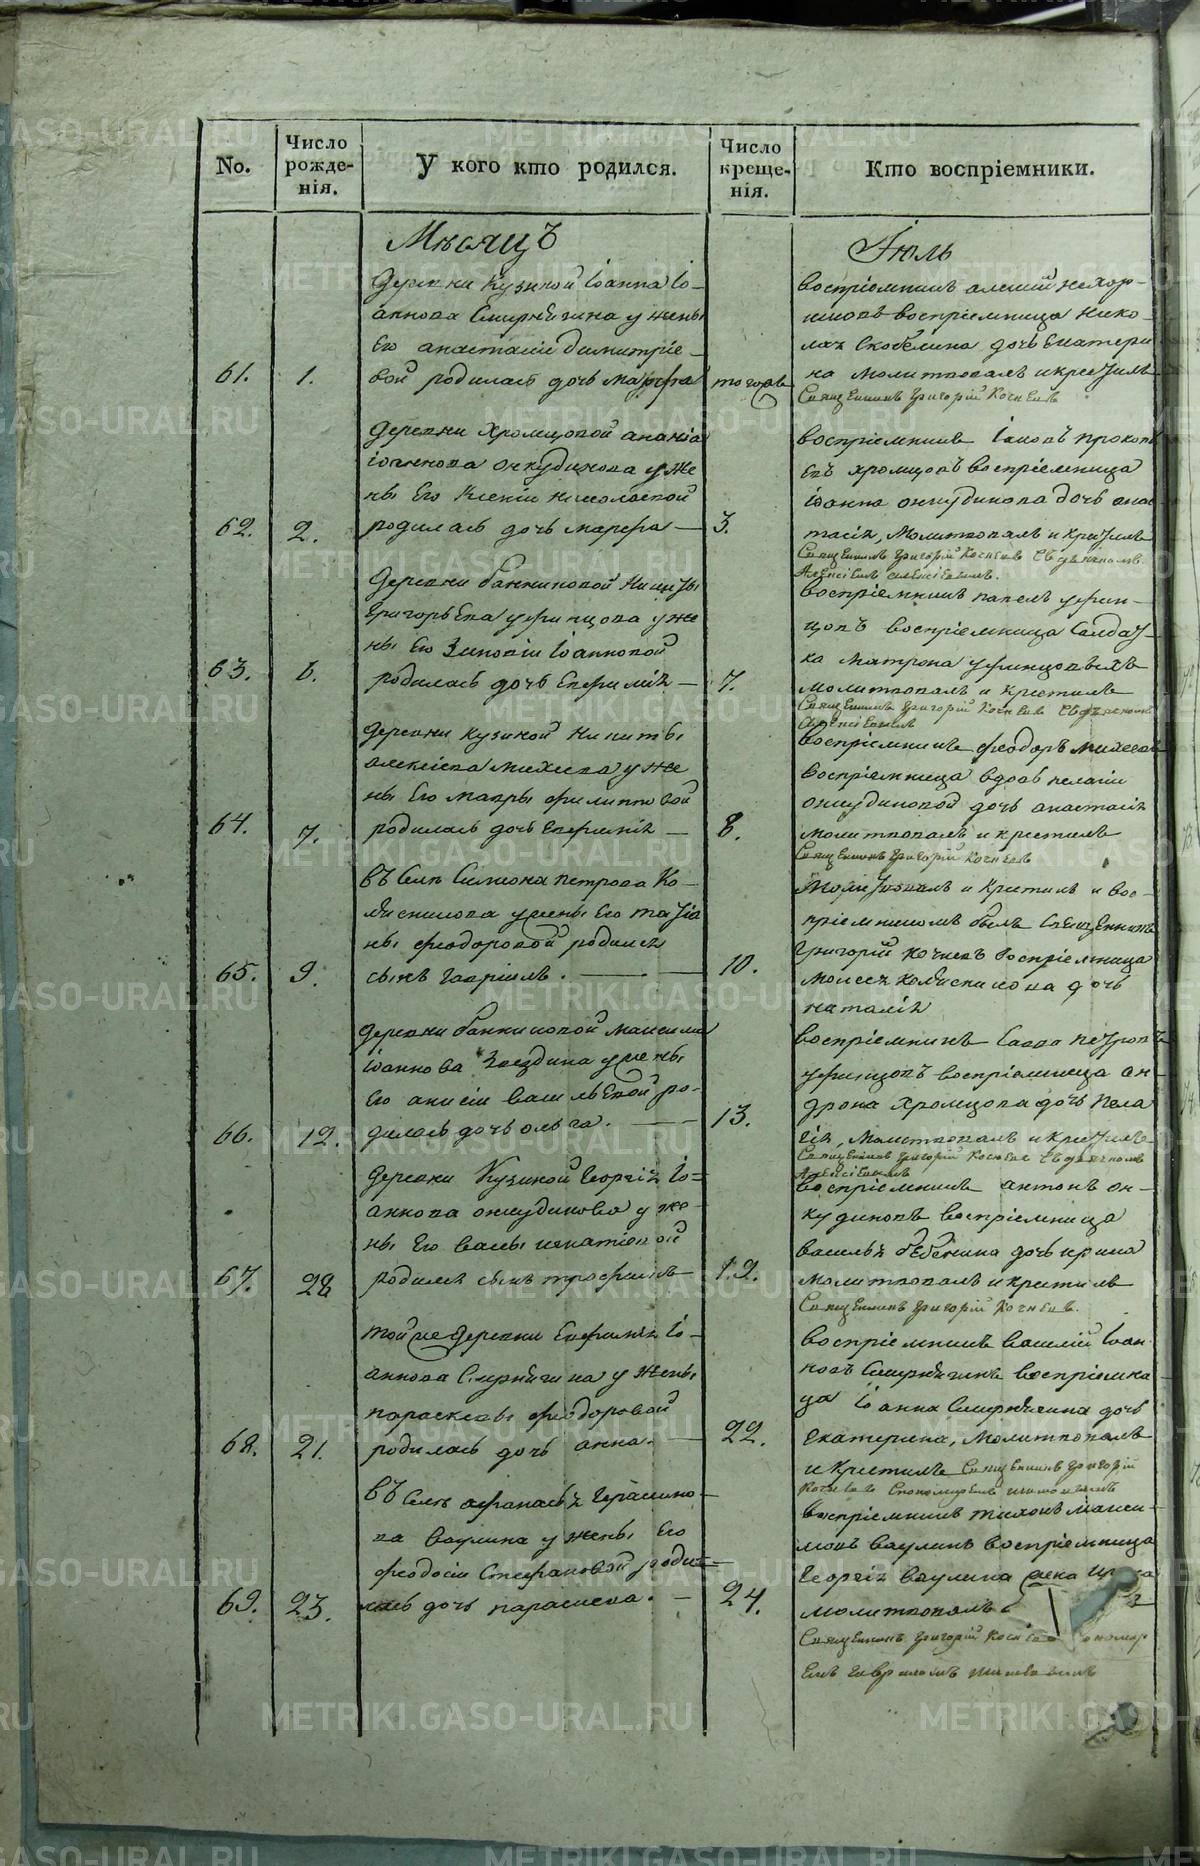 No.
Число рожденія.
У кого кто родился.
Число крещенія.
Кто воспріемники.
Мѣсяцъ
Іюль
61.
1.
деревни Кузиной Іоанна Іо-
аннова Смирнягина у жены
Его анастасіи димитріе-
вой родилась дочь марфа
тогожъ
воспріемникъ алексій
воспріемница нико-
лая Скобелина дочь Екатери
на молитвовалъ и крестилъ
Священникъ Григорій Кочневъ
62.
2.
деревни Хромцовой ананіа
іоаннова онкудинова у же
ны Его Ксеніи николаевой
родилась дочь марфа
3.
воспріемникъ Іаковъ прокопь
евъ хромцовъ воспріемница
іоанна онкудинова дочь анас
тасія, молитвовалъ и крестилъ
Священникъ Григорій Кочневъ Съ дьякономъ
Алексіемъ
63.
6.
деревни банниковой Никиты
Григорьева уфинцова у же
ны Его Зиновіи Іоанновой
родилась дочь Евфимія
7.
воспріемникъ павелъ уфин-
цовъ воспріемница Солдат-
ка матрона уфинцовыхъ
молитвовалъ и крестилъ
Священникъ Григорій Кочневъ Съ дьякономъ
64.
7.
деревни Кузиной Никиты
алексіева михеева у же
ны Его мавры филипповой
родилась дочь Евфимія
8.
воспріемникъ феодоръ михеевъ
воспріемница вдовы пелагіи
онкудиновой дочь анастасія
молитвовалъ и крестилъ
Священникъ Григорій Кочневъ
65.
9.
въ Селѣ Симеона петрова Ко-
у жены Его татіа
ны феодоровой родился
сынъ гавріилъ.
10.
молитвовалъ и крестилъ и вос-
пріемникомъ былъ Священникъ
григорій Кочневъ воспріемница
моисея дочь
наталія
66.
12.
деревни банниковой максима
іоаннова Звездина у жены
Его анисіи васильевой ро-
дилась дочь ольга.
13.
воспріемникъ Савва петровъ
уфинцовъ воспріемница ан
дрона хромцова дочь пела
гія, молитвовалъ и крестилъ
Священникъ Григорій Кочневъ Съ дьякономъ
67.
28
деревни Кузиной Георгія Іо-
аннова онкудинова у же-
ны Его вассы игнатіевой
родился сынъ трофимъ
12.
воспріемникъ антонъ он-
кудиновъ воспріемница
василья бебенина дочь ирина
молитвовалъ и крестилъ
Священникъ Григорій Кочневъ.
68.
21.
той же деревни Евфимія Іо-
аннова Смирнягина у жены
парасковьи феодоровой
родилась дочь анна.
22.
воспріемникъ василій Іоан-
новъ Смирнягинъ воспріемни
ца Іоанна Смирнягина дочь
екатерина, молитвовалъ
и крестилъ Священникъ Григорій
Кочневъ
69.
23.
въ Селѣ афанасья Герасимо-
ва ваулина у жены Его
феодосіи Стефановой роди-
лась дочь параскева.
24.
воспріемникъ тихонъ макси-
мовъ ваулинъ воспріемница
Георгія ваулина жена
молитвовалъ
Священникъ Григорій